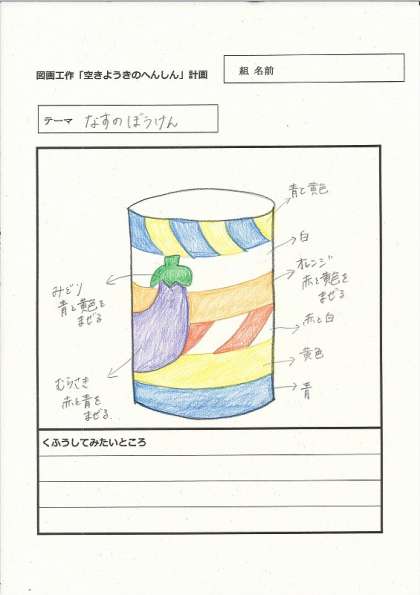 図画工作「空きようきのへんしん」計画
組 名前
テーマ なすのぼうけん
青と黄色
白
オレンジ
赤と黄色を
まぜる
みどり
青と黄色を
まぜる
赤と白
黄色
むらさき
赤と青を
まぜる
青
くふうしてみたいところ